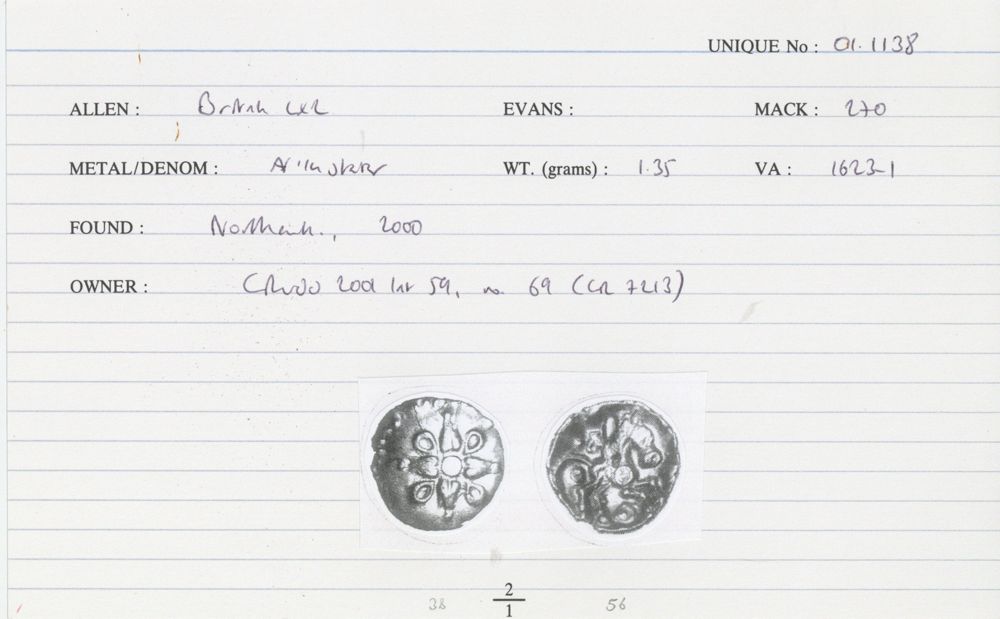 UNIQUE No : 01.1138
ALLEN : British LX2 EVANS : MACK : 270
METAL/DENOM : WT. (grams) : 1.35 VA : 1623-1
FOUND : 2000
OWNER : 2001 59, no. 69 (CR 7213)
38 2/1 56